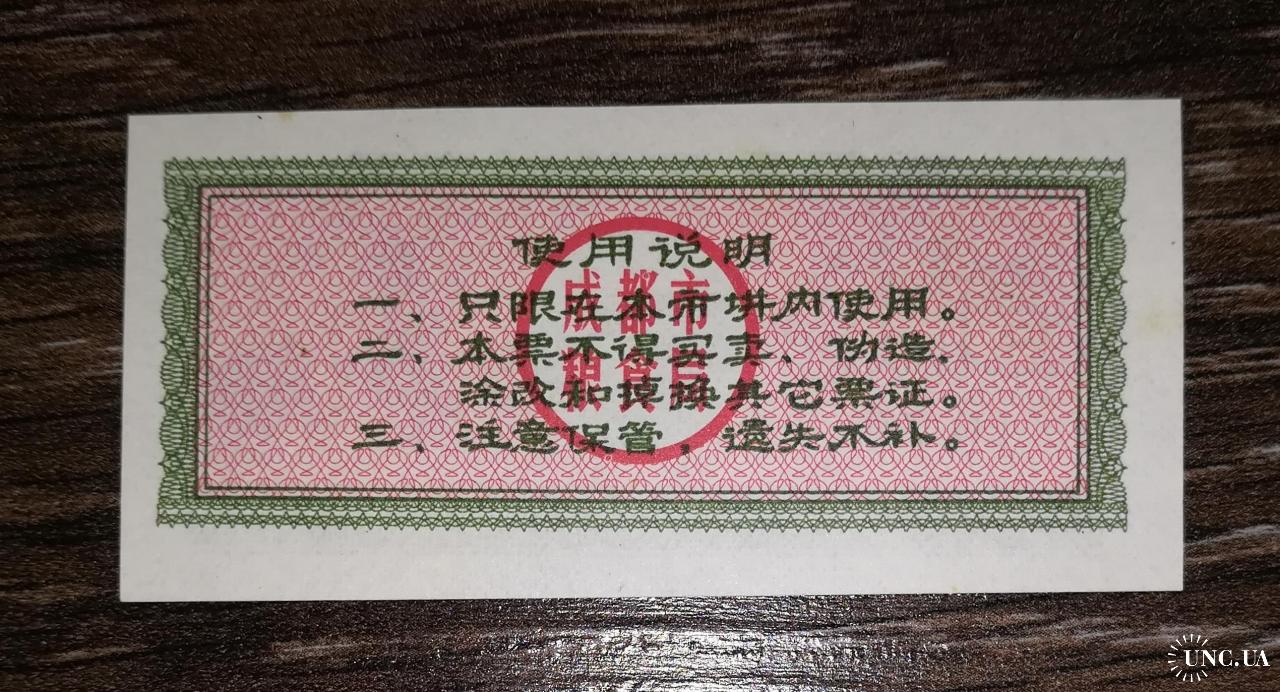 使用说明
一、只限在本市境内使用。
二、本票不得买卖、伪造、
涂改和掉换其它票证。
三、注意保管，遗失不补。
成都市
粮食局
UNC.UA